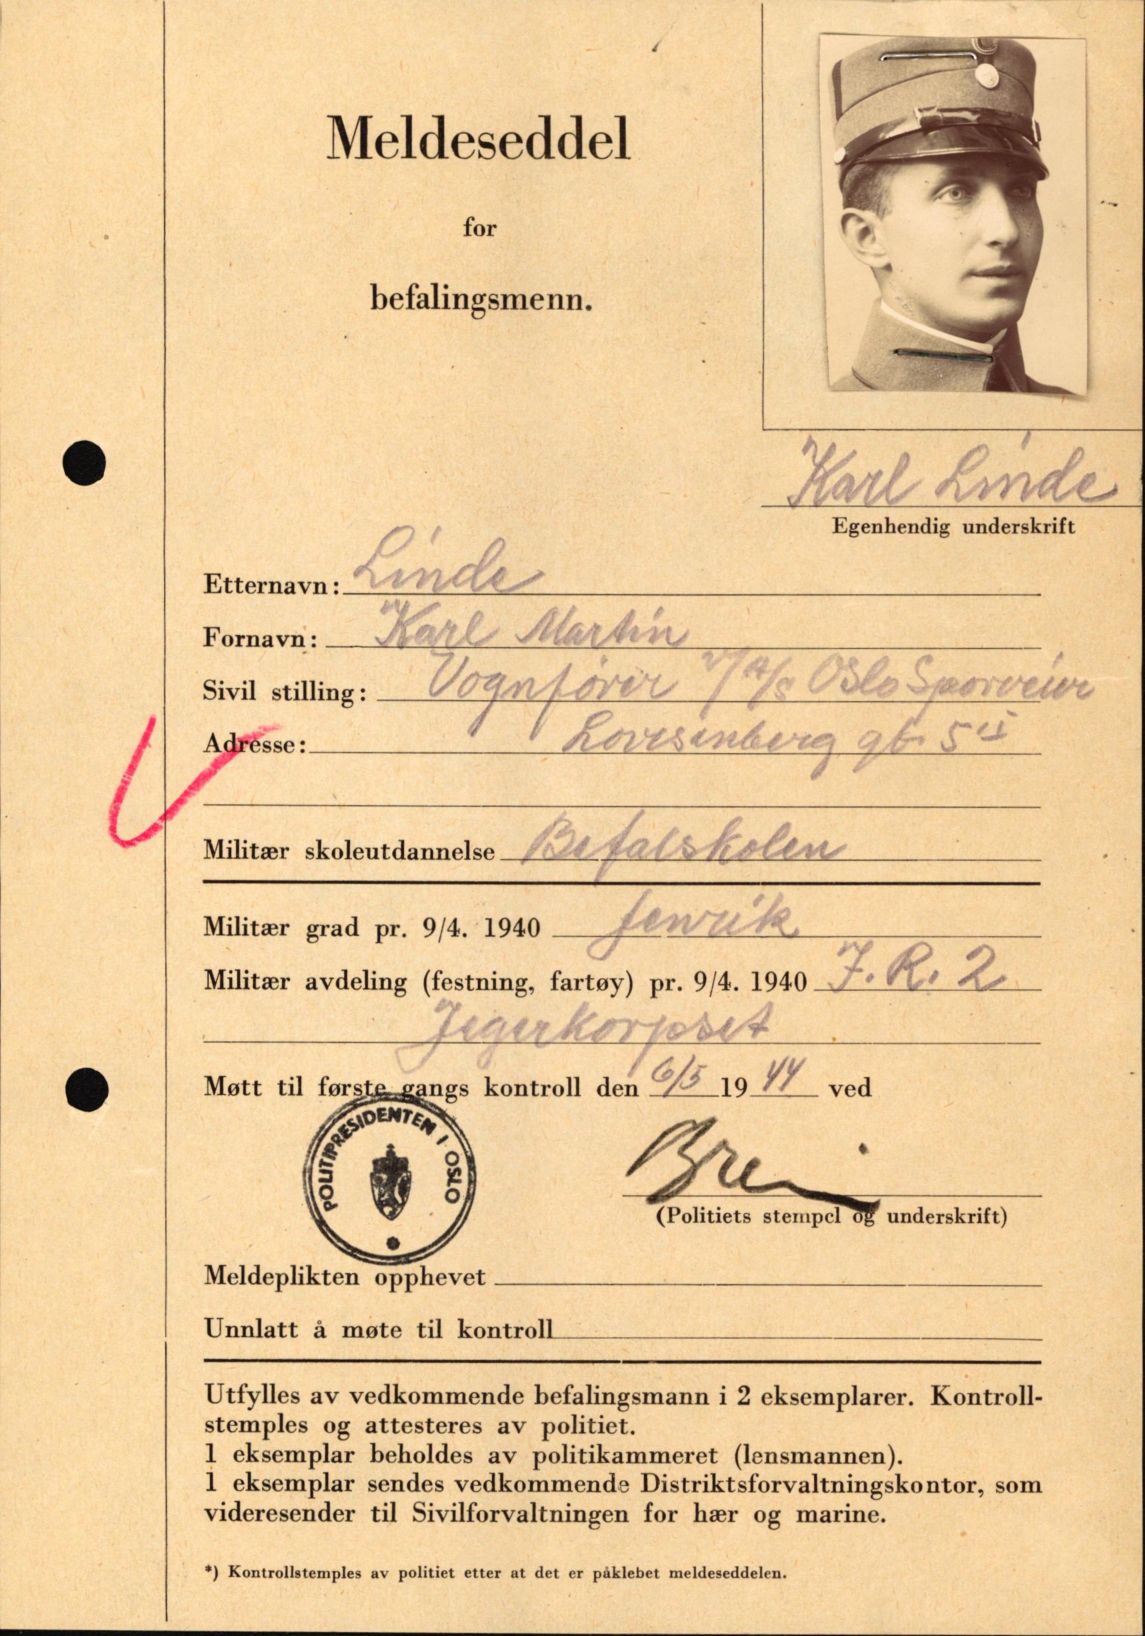 Meldeseddel
for
befalingsmenn.
Karl Linde
Egenhendig underskrift
Etternavn: Linde
Fornavn: Karl Martin
Sivil stilling: Vognfører v/ A/S Oslo Sporveier
Adresse: Lovisenberg gt. 5 II
Militær skoleutdannelse Befalskolen
Militær grad pr. 9/4. 1940 fenrik
Militær avdeling (festning, fartøy) pr. 9/4. 1940 I.R. 2
Jegerkorpset
Møtt til første gangs kontroll den 6/5 19 44 ved
POLITIPRESIDENTEN I OSLO
(Politiets stempel og underskrift)
Meldeplikten opphevet
Unnlatt å møte til kontroll
Utfylles av vedkommende befalingsmann i 2 eksemplarer. Kontroll-
stemples og attesteres av politiet.
1 eksemplar beholdes av politikammeret (lensmannen).
1 eksemplar sendes vedkommende Distriktsforvaltningskontor, som
videresender til Sivilforvaltningen for hær og marine.
*) Kontrollstemples av politiet etter at det er påklebet meldeseddelen.